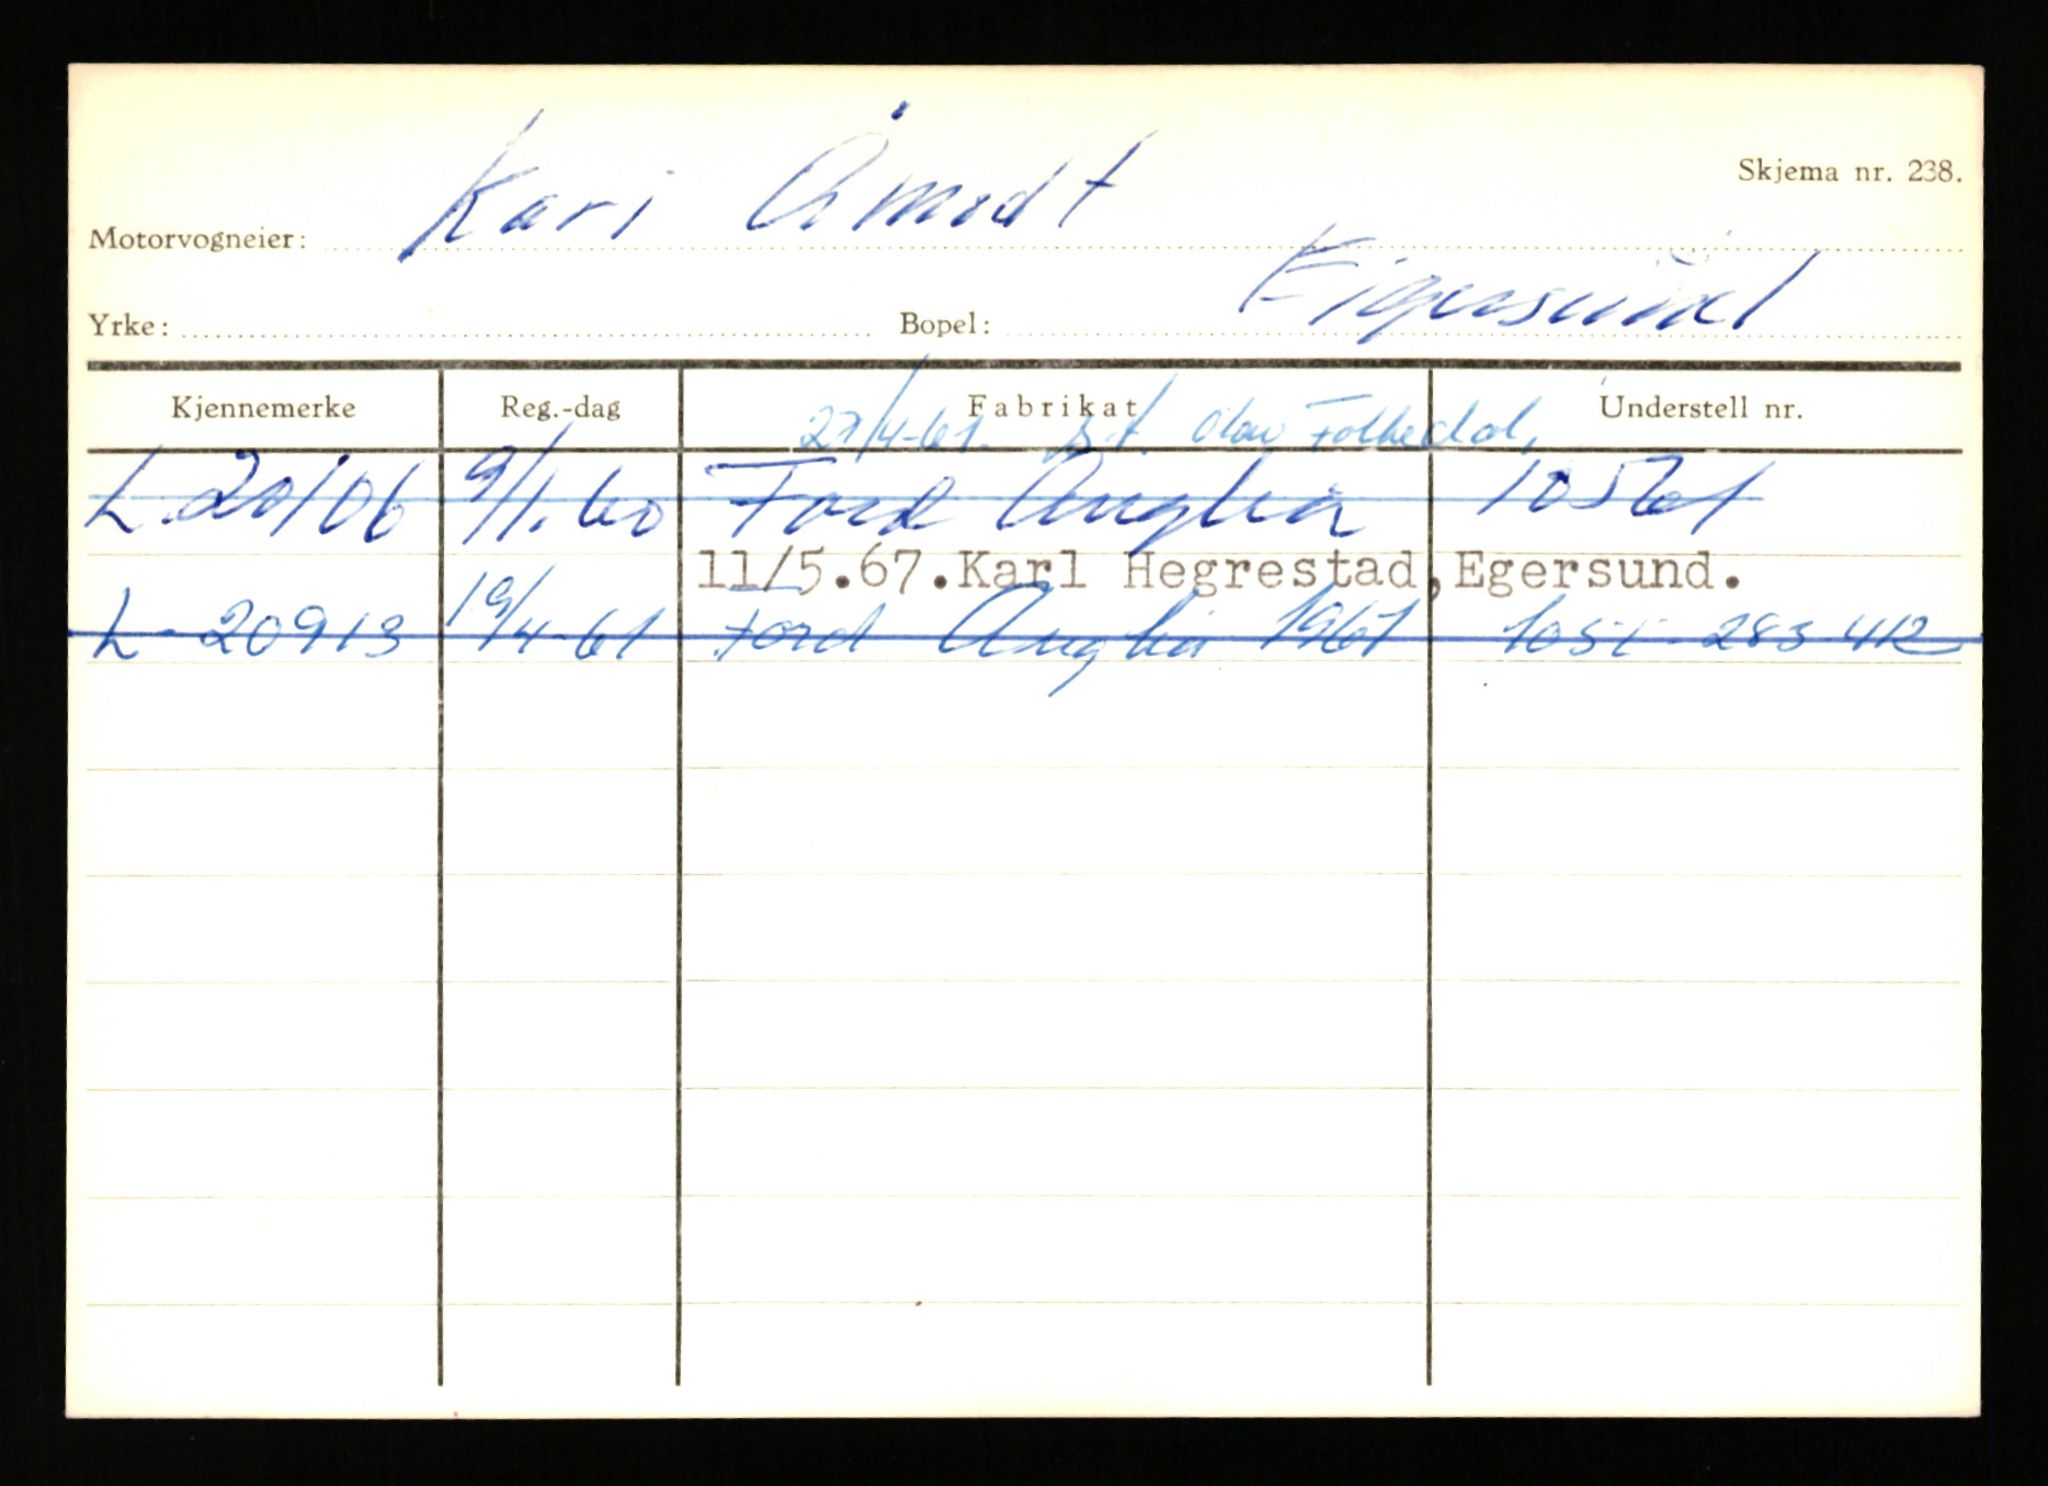 Skjema nr. 238.
Motorvogneier: Kari Åmodt
Yrke: Bopel: Eigersund
Kjennemerke Reg.-dag Fabrikat Understell nr.
27/4-61. s.f. Olav Folkedal,
L.20106 9/1.60 Ford Anglia 10561
11/5.67.Karl Hegrestad,Egersund.
L-20913 19/4-61 Ford Anglia 1961 283412